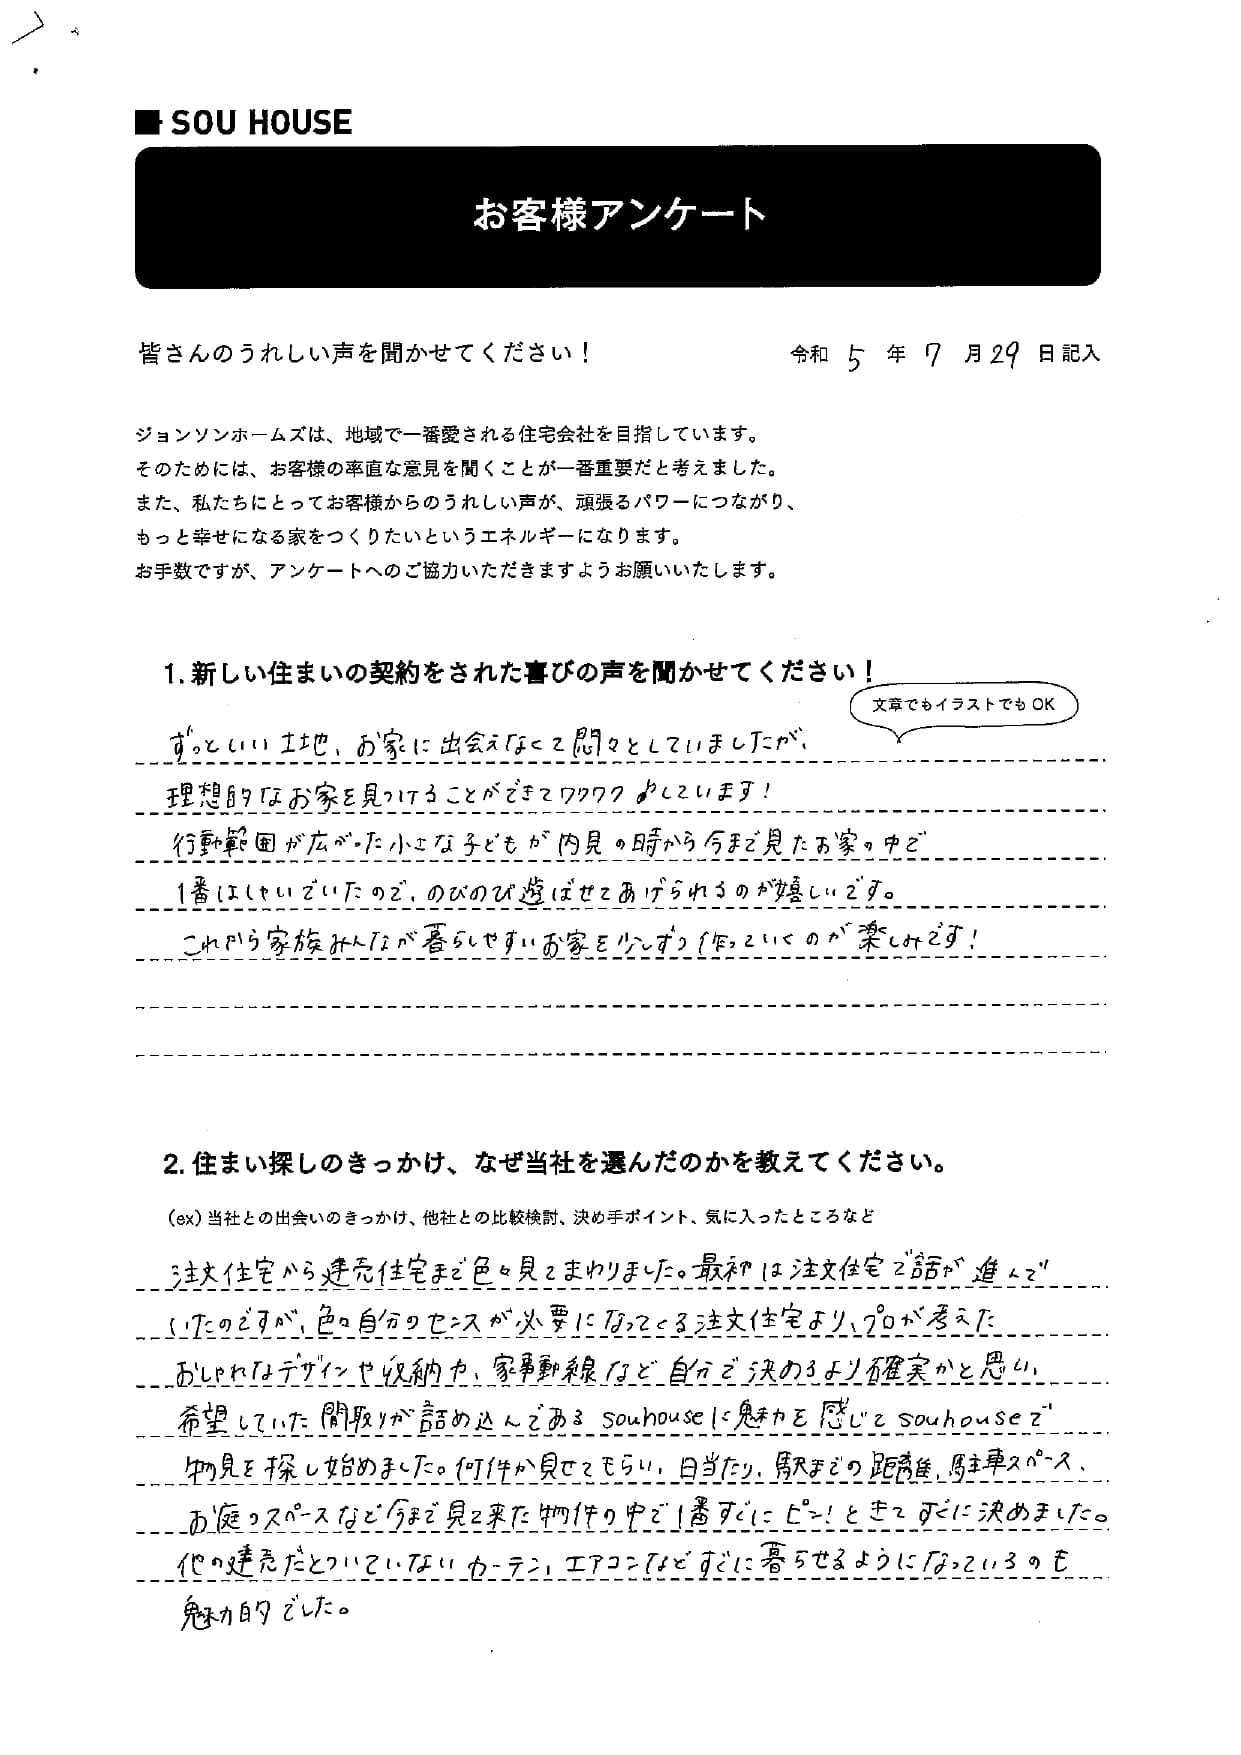 SOU HOUSE
お客様アンケート
皆さんのうれしい声を聞かせてください！
令和 5 年 7 月 29 日記入
ジョンソンホームズは、地域で一番愛される住宅会社を目指しています。
そのためには、お客様の率直な意見を聞くことが一番重要だと考えました。
また、私たちにとってお客様からのうれしい声が、頑張るパワーにつながり、
もっと幸せになる家をつくりたいというエネルギーになります。
お手数ですが、アンケートへのご協力いただきますようお願いいたします。
1. 新しい住まいの契約をされた喜びの声を聞かせてください！
文章でもイラストでも OK
ずっといい土地、お家に出会えなくて悶々としていましたが、
理想的なお家を見つけることができてワクワクしています！
行動範囲が広がった小さな子どもが内見の時から今まで見たお家の中で
1番はしゃいでいたので、のびのび遊ばせてあげられるのが嬉しいです。
これから家族みんなが暮らしやすいお家を少しずつ作っていくのが楽しみです！
2. 住まい探しのきっかけ、なぜ当社を選んだのかを教えてください。
（ex）当社との出会いのきっかけ、他社との比較検討、決め手ポイント、気に入ったところなど
注文住宅から建売住宅まで色々見てまわりました。最初は注文住宅で話が進んで
いたのですが、色々自分のセンスが必要になってくる注文住宅より、プロが考えた
おしゃれなデザインや収納や、家事動線など自分で決めるより確実かと思い、
希望していた間取りが詰め込んである souhouseに魅力を感じて souhouseで
物見を探し始めました。何件か見せてもらい、日当たり、駅までの距離、駐車スペース、
お庭のスペースなど今まで見て来た物件の中で1番すぐにピン！ときてすぐに決めました。
他の建売だとついていないカーテン、エアコンなどすぐに暮らせるようになっているのも
魅力的でした。